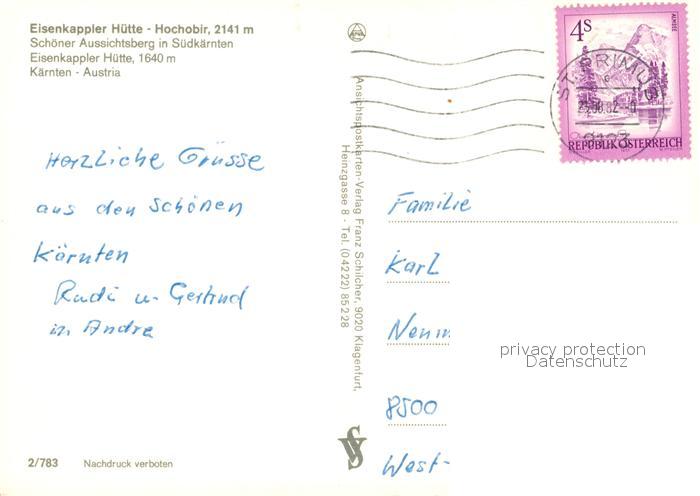 Eisenkappler Hütte - Hochobir, 2141 m
Schöner Aussichtsberg in Südkärnten
Eisenkappler Hütte, 1640 m
Kärnten - Austria
Herzliche Grüsse
aus den schönen
Kärnten
Rudi u. Gertrud
m. Andre
2/783 Nachdruck verboten
Ansichtspostkarten-Verlag Franz Schilcher, 9020 Klagenfurt,
Heinzgasse 8 - Tel. (04222) 85228
4S
ALMSEE
REPUBLIK ÖSTERREICH
ST. PRIMUS
Familie
Karl
8500
West-
privacy protection
Datenschutz